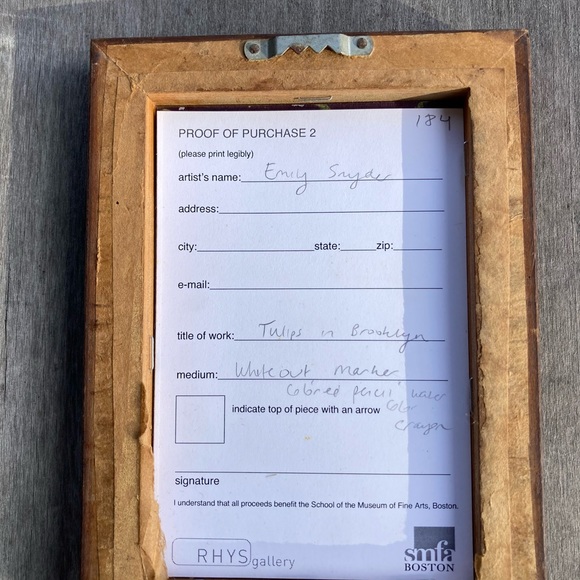 184
PROOF OF PURCHASE 2
(please print legibly)
artist's name: Emily Snyder
address:
city: state: zip:
e-mail:
title of work: Tulips in Brooklyn
medium: Whiteout Marker
Colored pencil, water
color
crayon
indicate top of piece with an arrow
signature
I understand that all proceeds benefit the School of the Museum of Fine Arts, Boston.
RHYS gallery
smfa
BOSTON